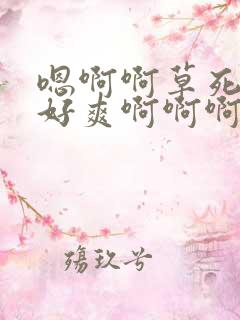 嗯啊啊草死
好爽啊啊啊
殇玖兮